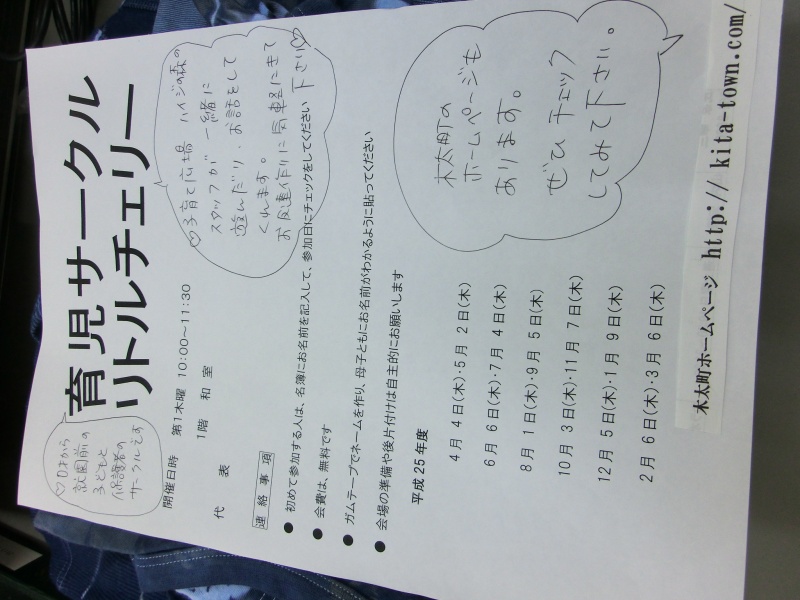 育児サークル
リトルチェリー
♡0才から
就園前の
子どもと
保護者の
サークルです
♡子育て広場 ハイジの森の
スタッフが一緒に
遊んだり、お話をして
くれます。
お友達作りに気軽にきて
下さい♡
開催日時 第1木曜 10:00～11:30
1階 和室
代表
連絡事項
● 初めて参加する人は、名簿にお名前を記入して、参加日にチェックをしてください
● 会費は、無料です
● ガムテープでネームを作り、母子ともにお名前がわかるように貼ってください
● 会場の準備や後片付けは自主的にお願いします
平成25年度
4月 4日(木)・5月 2日(木)
6月 6日(木)・7月 4日(木)
8月 1日(木)・9月 5日(木)
10月 3日(木)・11月 7日(木)
12月 5日(木)・1月 9日(木)
2月 6日(木)・3月 6日(木)
木太町の
ホームページも
あります。
ぜひ チェック
してみて下さい。
木太町ホームページ http://kita-town.com/